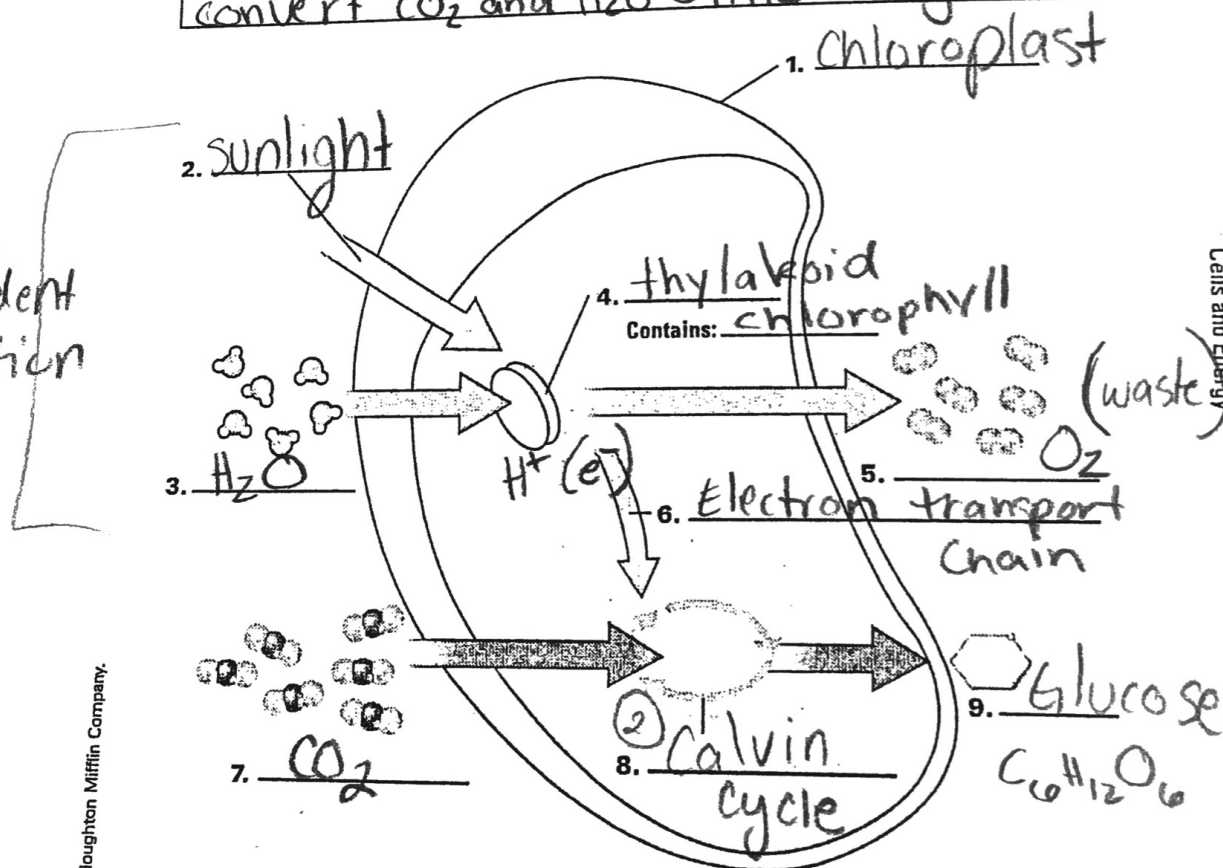 convert CO2 and H2O
1. chloroplast
2. sunlight
4. thylakoid
Contains: chlorophyll
(waste)
3. H2O
H+ (e-)
5. O2
6. Electron transport
Chain
7. CO2
② 8. Calvin
cycle
9. Glucose
C6H12O6
Cells and Energy
Houghton Mifflin Company.